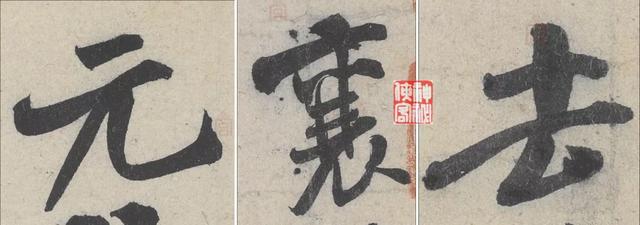 元襄去